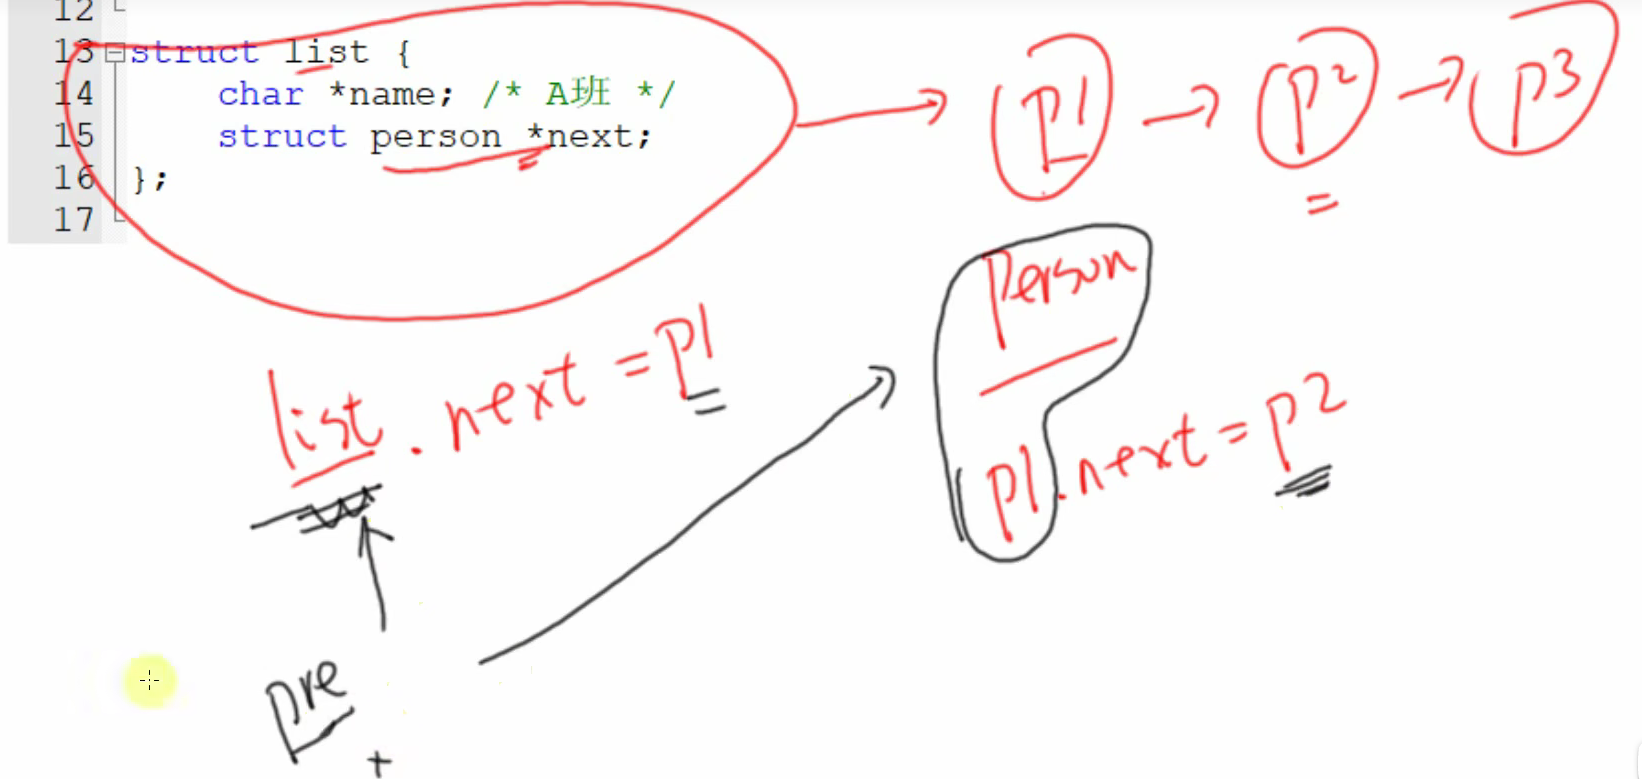 12
13 struct list {
14 char *name; /* A班 */
15 struct person *next;
16 };
17
p1 → p2 → p3
person
list.next = p1
p1.next = p2
pre